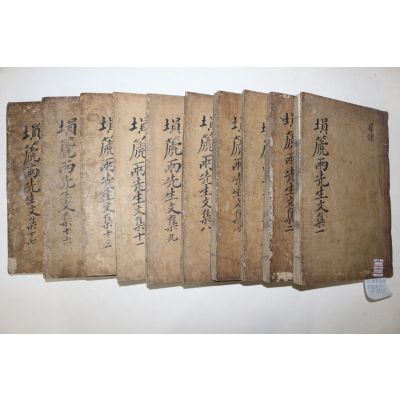 目錄
塤篪兩先生文集一
塤篪兩先生文集二
塤篪兩先生文集
塤篪兩先生文集八
塤篪兩先生文集九
塤篪兩先生文集十一
塤篪兩先生文集十三
塤篪兩先生文集十六
塤篪兩先生文集十七